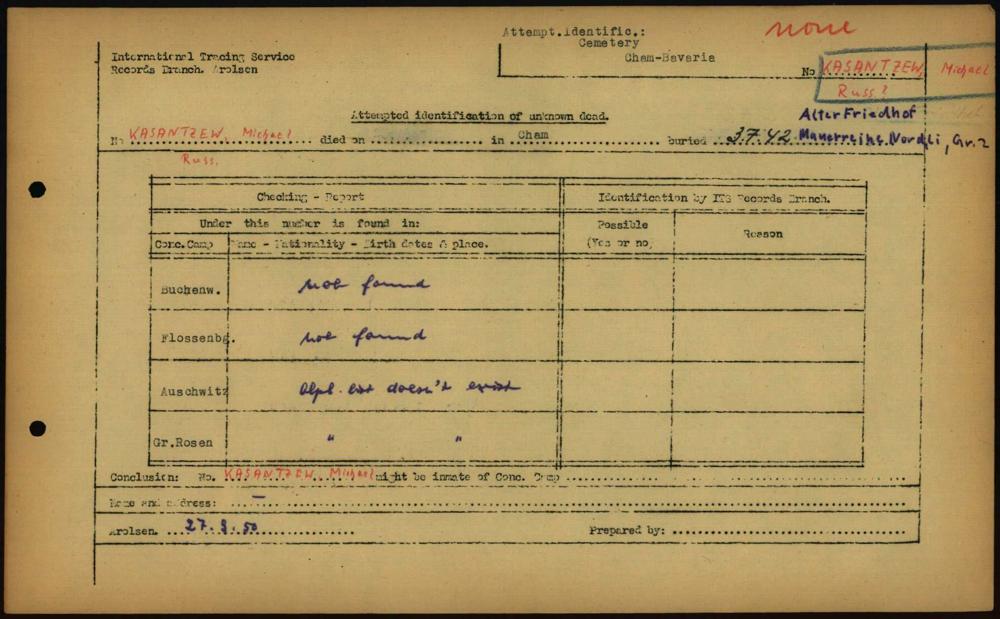 none
Attempt.Identific.:
Cemetery
Cham-Bavaria
International Tracing Service
Records Branch. Arolsen
No KASANTZEW, Michael
Russ.?
Attempted identification of unknown dead.
Alter Friedhof
No KASANTZEW, Michael died on in Cham buried 3.7.42 Mauerreihe Nordli, Gr.2
Russ.
Checking - Report
Identification by ITS Records Branch.
Under this number is found in:
Possible
(Yes or no)
Reason
Conc.Camp
Name - Nationality - Birth dates & place.
Buchenw. not found
Flossenbg. not found
Auschwitz Alph. list doesn't exist
Gr.Rosen " "
Conclusion: No. KASANTZEW, Michael might be inmate of Conc. Camp
Name and address: —
Arolsen. 27.9.50 Prepared by: